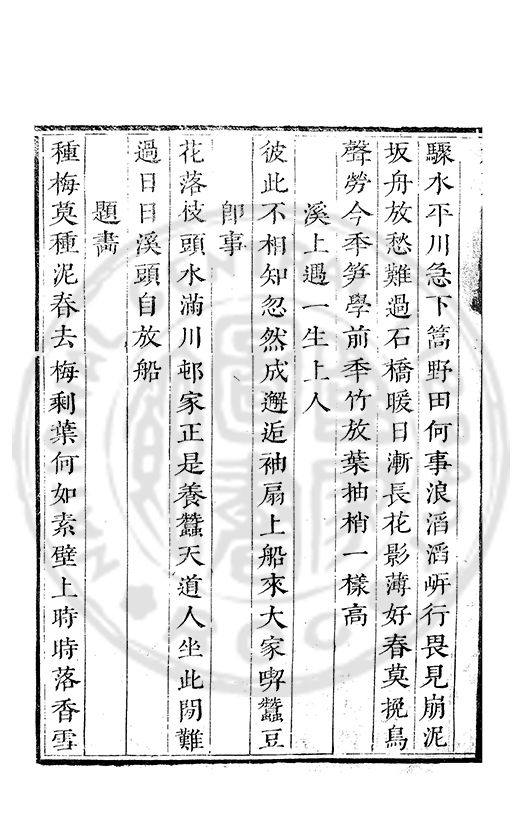 驟水平川急下篙野田何事浪滔滔岍行畏見崩泥
坂舟放愁難過石橋暖日漸長花影薄好春莫挽鳥
聲勞今秊笋學前秊竹放葉抽梢一樣高
溪上遇一生上人
彼此不相知忽然成邂逅袖扇上船來大家喫蠶豆
卽事
花落枝頭水滿川邨家正是養蠶天道人坐此閉難
過日日溪頭自放船
題畵
種梅莫種泥春去梅剩葉何如素壁上時時落香雪